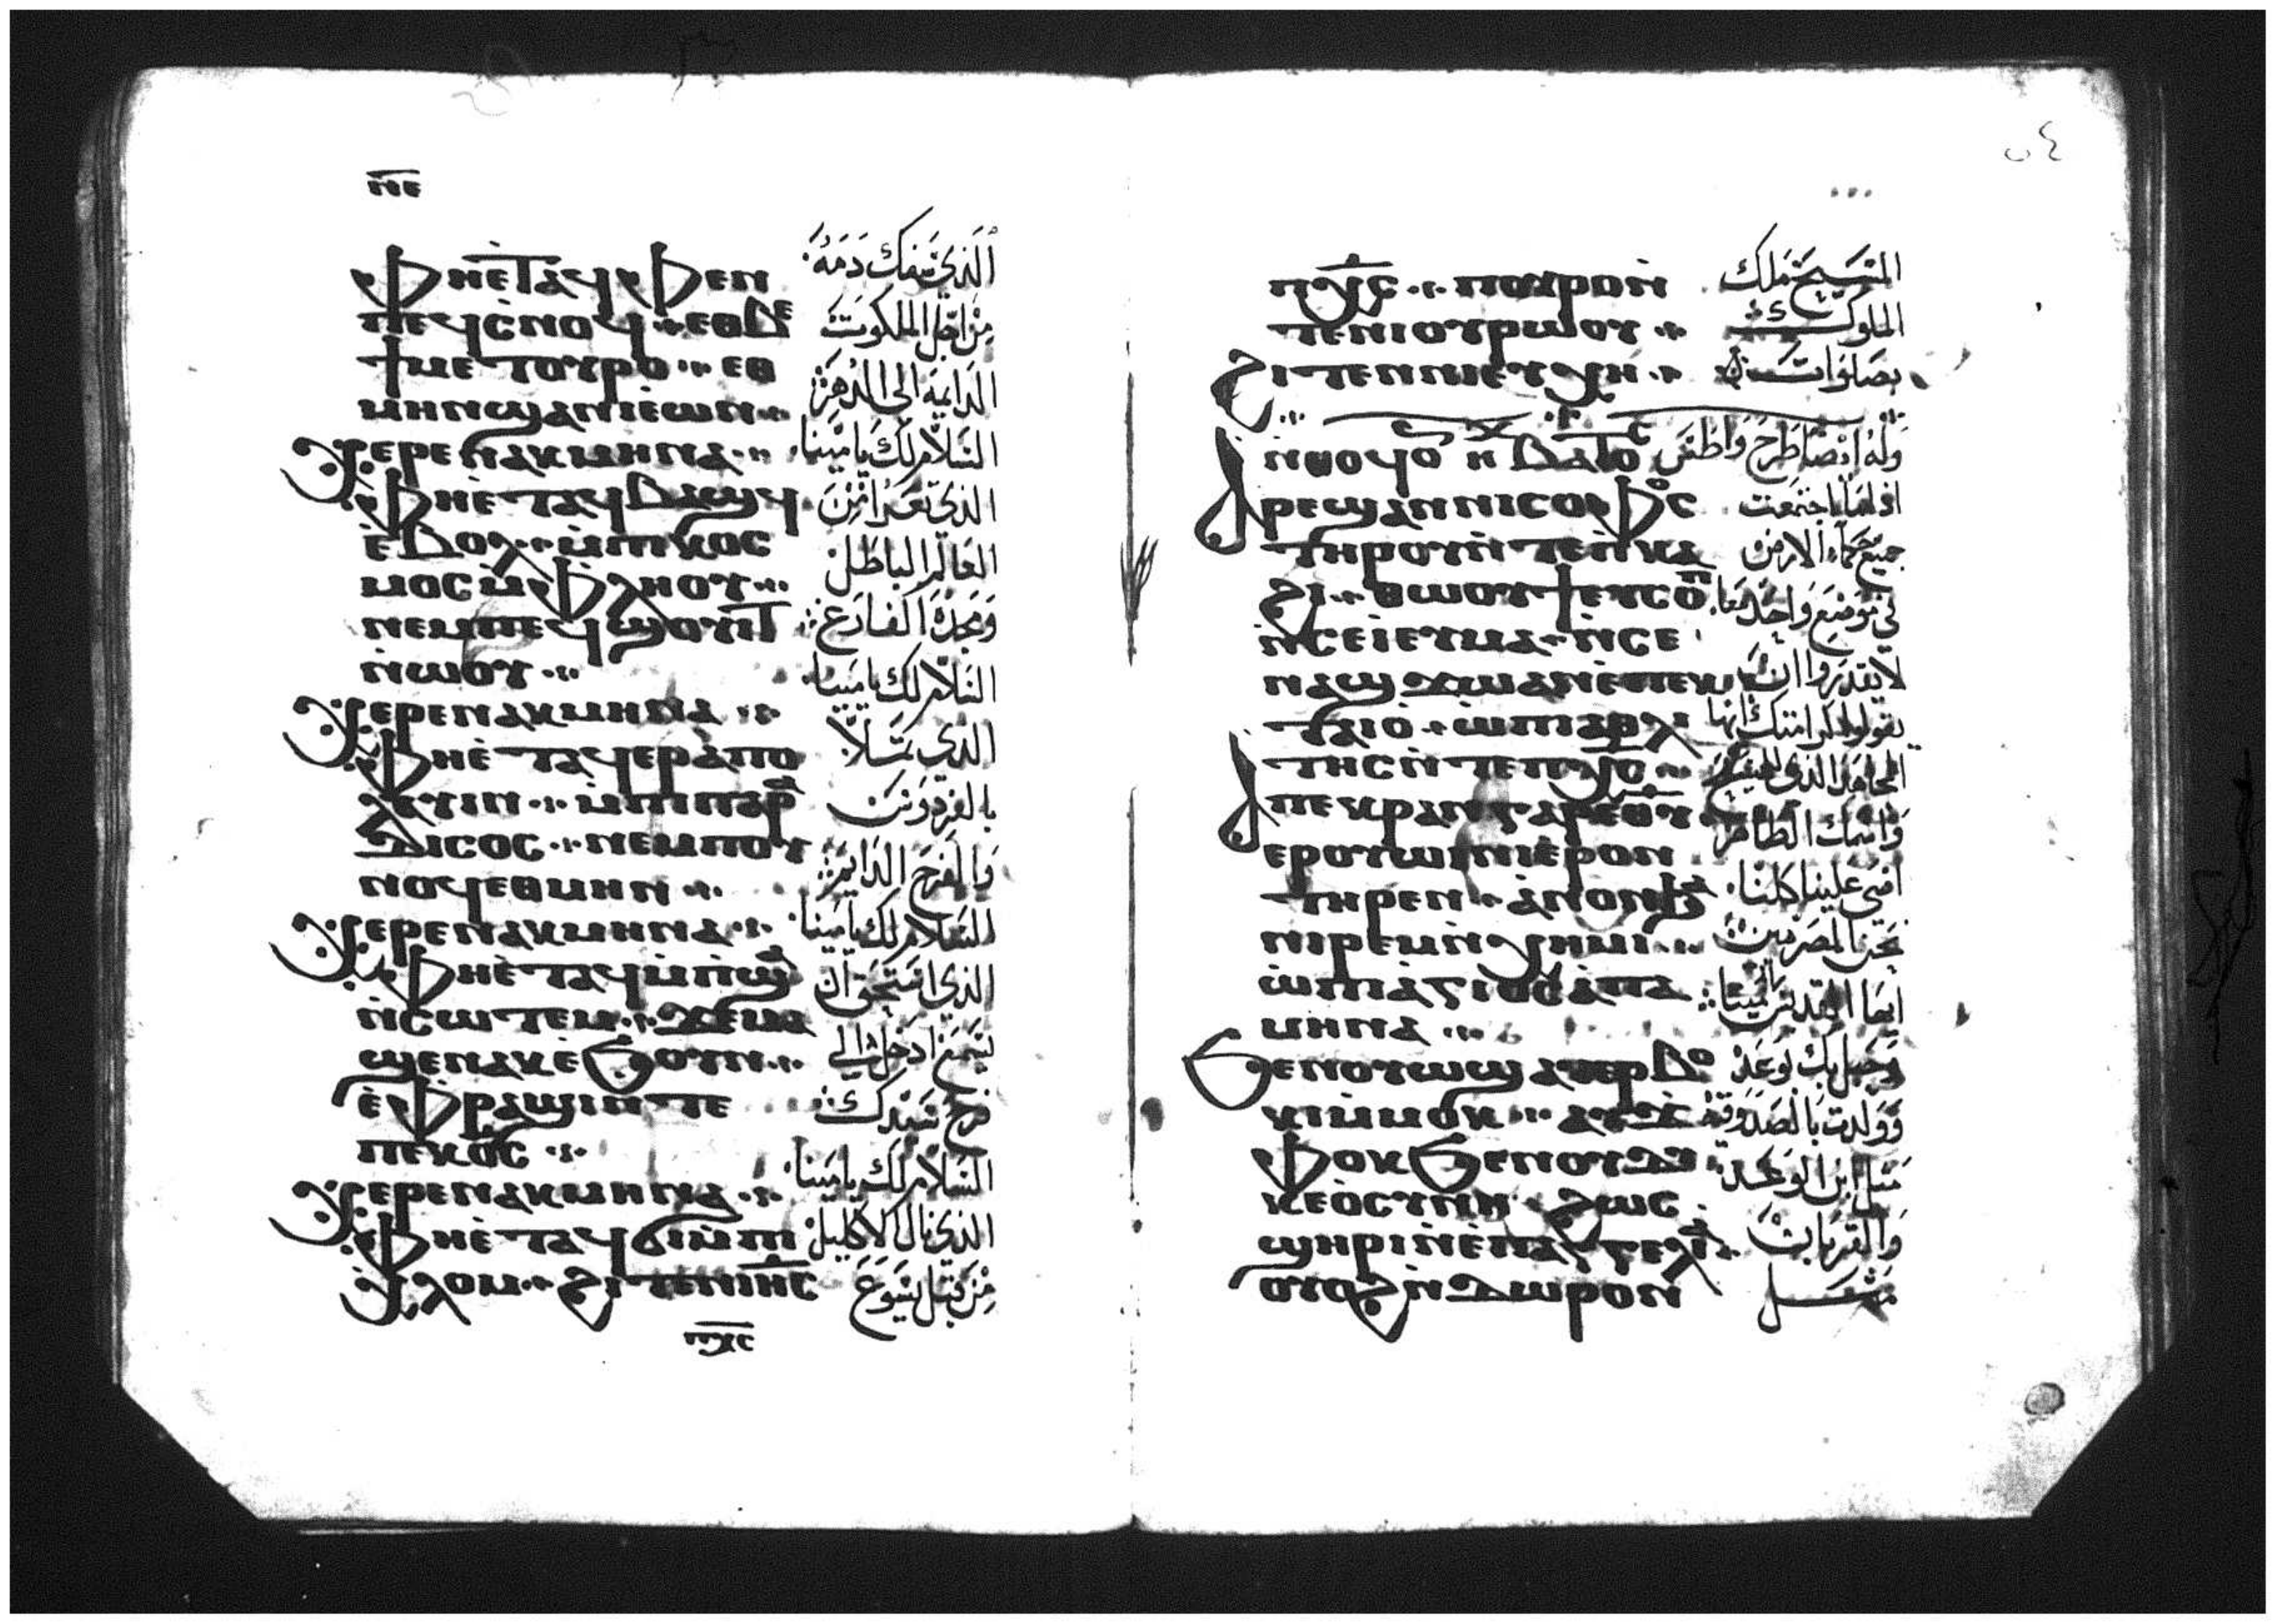 ⲛⲉ
ⲫⲏⲉⲧⲁϥⲫⲉⲛ
ⲡⲉϥⲥⲛⲟϥ ⲉⲑⲃⲉ
ϯⲙⲉⲧⲟⲩⲣⲟ ⲉⲑ
ⲙⲏⲛϣⲁⲛⲓⲉⲱⲛ
ⲭⲉⲣⲉⲛⲁⲕⲙⲏⲛⲁ
ⲫⲏⲉⲧⲁϥⲃⲁϣϥ
ⲉⲃⲟⲗ ⲙⲡⲓⲕⲟⲥ
ⲙⲟⲥⲛⲉⲫⲗⲏⲟⲩ
ⲛⲉⲙⲡⲉϥⲱⲟⲩ
ⲛϣⲟⲩ
ⲭⲉⲣⲉⲛⲁⲕⲙⲏⲛⲁ
ⲫⲏⲉⲧⲁϥⲉⲣⲁⲡⲟ
ⲗⲁⲩⲓⲛ ⲙⲡⲓⲡⲁⲣⲁ
ⲇⲓⲥⲟⲥ ⲛⲉⲙⲡⲟⲩ
ⲛⲟϥⲉⲑⲙⲏⲛ
ⲭⲉⲣⲉⲛⲁⲕⲙⲏⲛⲁ
ⲫⲏⲉⲧⲁϥⲙⲡϣⲁ
ⲛⲥⲱⲧⲉⲙ ϫⲉⲙⲁ
ϣⲉⲛⲁⲕⲉϧⲟⲩⲛ
ⲉⲫⲣⲁϣⲓⲛⲧⲉ
ⲡⲉⲕⲟⲥ
ⲭⲉⲣⲉⲛⲁⲕⲙⲏⲛⲁ
ⲫⲏⲉⲧⲁϥϭⲓⲙⲡⲓ
ⲭⲗⲟⲙ ϩⲓⲧⲉⲛⲓⲏⲥ
ⲡⲭⲥ
الذي سفك دمه
من اجل الملكوت
الدايمة الى الدهر
السلام لك يا مينا
الذي تعرا من
العالم الباطل
ومجده الفارغ
السلام لك يا مينا
الذي تملا
بالفردوس
والفرح الدايم
السلام لك يا مينا
الذي استحق ان
يسمع ادخل الى
فرح سيدك
السلام لك يا مينا
الذي نال الاكليل
من قبل يسوع
٥٤
ⲡⲭⲥ ⲡⲟⲩⲣⲟⲛ
ⲧⲉⲛⲓⲟⲩⲣⲱⲟⲩ
ϩⲓⲧⲉⲛⲛⲓⲉⲩⲭⲏ
ⲛⲑⲟϥⲟⲛ ⲃⲁⲧⲟⲥ
ⲁⲣⲉϣⲁⲛⲛⲓⲥⲟⲫⲟⲥ
ⲧⲏⲣⲟⲩⲛⲧⲉⲡⲕⲁ
ϩⲓ ⲑⲱⲟⲩϯⲉⲩⲥⲟⲡ
ⲛⲥⲉⲓⲉⲩⲙⲁ ⲛⲥⲉ
ⲛⲁϣϫⲱⲁⲛⲉⲡⲉⲕ
ⲧⲁⲓⲟ ⲱⲡⲓⲁⲑⲗⲓ
ⲧⲏⲥⲛⲧⲉⲡⲭⲥ
ⲁⲡⲉⲕⲣⲁⲛ
ⲉⲣⲟⲩⲱⲓⲛⲓⲉⲣⲟⲛ
ⲧⲏⲣⲉⲛ ⲁⲛⲟⲛϧⲁ
ⲛⲓⲣⲉⲙⲛⲭⲏⲙⲓ
ⲱⲡⲓⲁⲅⲓⲟⲥⲁⲡⲁ
ⲙⲏⲛⲁ
ϧⲉⲛⲟⲩⲱϣⲁⲩⲉⲣⲃⲟ
ⲕⲓⲙⲙⲟⲕ ⲁⲩϫⲉ
ⲫⲟⲕϧⲉⲛⲟⲩⲇⲓ
ⲕⲉⲟⲥⲩⲛⲏ ϩⲱⲥ
ϣⲏⲣⲓⲛⲉⲡⲁⲅⲅⲉⲗⲓⲁ
ⲟⲩⲟϩⲛⲇⲱⲣⲟⲛ
المسيح ملك
الملوك
بصلوات
وله ايضا طرح واطس
اذا ما اجتمعت
جميع حكماء الارض
في موضع واحد معا
لا يقدروا ان
يقولوا كرامتك ايها
المجاهد الذي للمسيح
واسمك الطاهر
اضى علينا كلنا
نحن المصريين
ايها القديس ابا مينا
وحبل بك بوعد
وولدت بالصدوقية
مثل ابن الوعد
والقربان